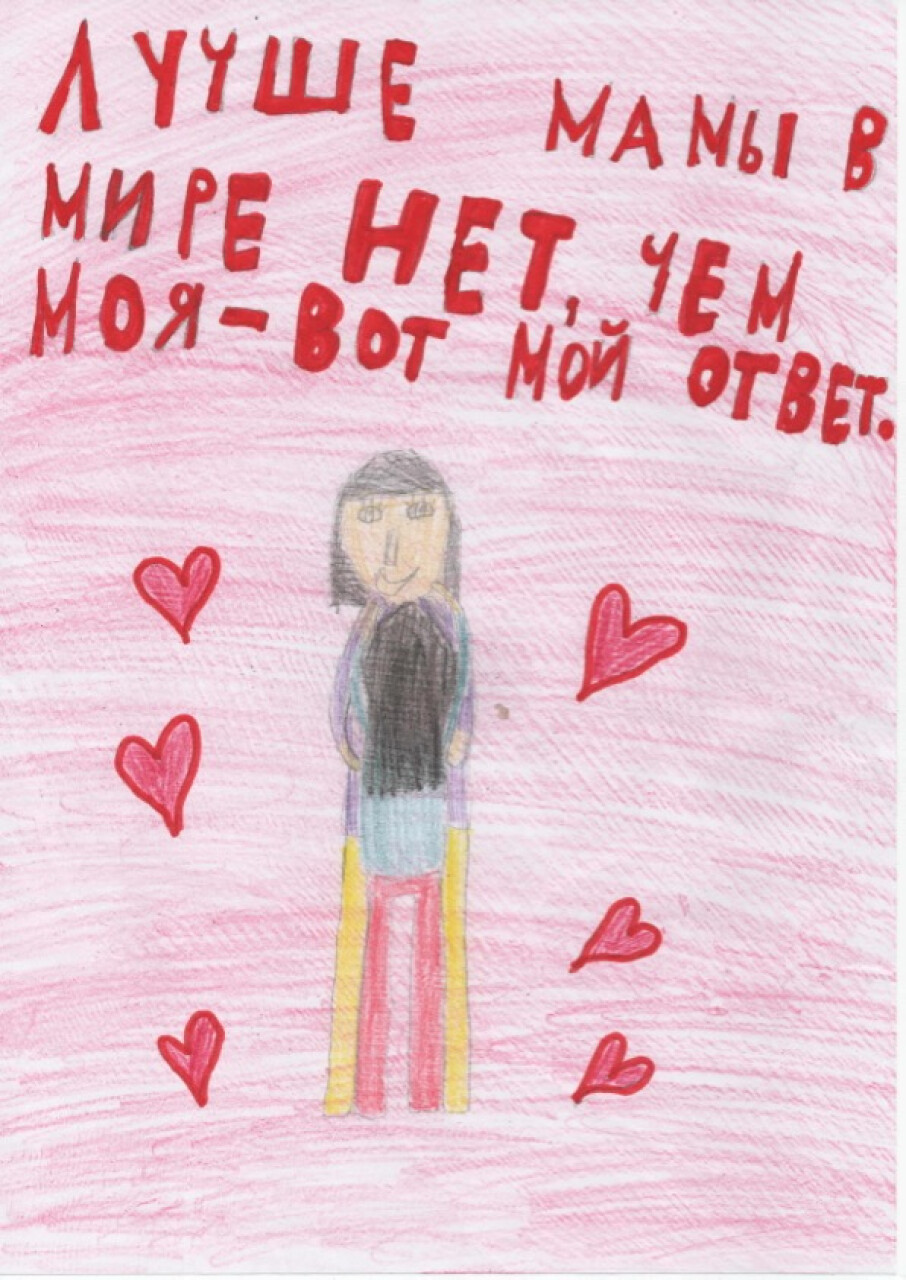 ЛУЧШЕ МАМЫ В
МИРЕ НЕТ, ЧЕМ
МОЯ – ВОТ МОЙ ОТВЕТ.